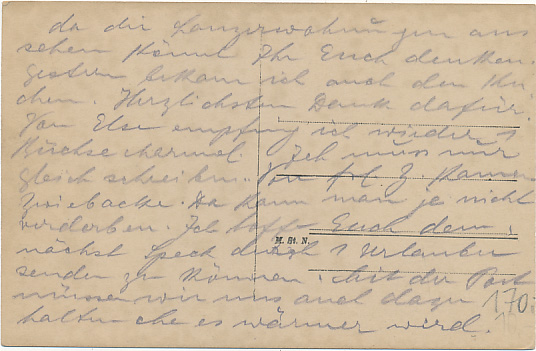 da die Panzerwohnungen aus
sehen könnt Ihr Euch denken.
gestern bekam ich auch den Ku
chen. Herzlichsten Dank dafür.
Von Else empfing ich wieder 1
Büchse
Ich muss nur
gleich schreiben.
Zwiebacke. Da kann man ja nicht
verderben. Ich hoffe Euch dem
nächst Speck durch 1 Urlauber
senden zu können. Mit der Post
müssen wir uns auch dazu
halten ehe es wärmer wird.
M. St. N.
170.